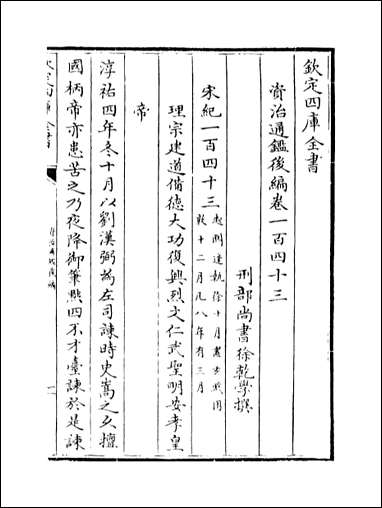 欽定四庫全書
資治通鑑後編卷一百四十三
刑部尚書徐乾學撰
宋紀一百四十三 起閼逢執徐十月盡玄黓困
敦十二月凡八年有三月
理宗建道備德大功復興烈文仁武聖明安孝皇
帝
淳祐四年冬十月以劉漢弼為左司諫時史嵩之久擅
國柄帝亦患苦之乃夜降御筆黜四不才臺諫於是諫
欽定四庫全書
資治通鑑後編
一